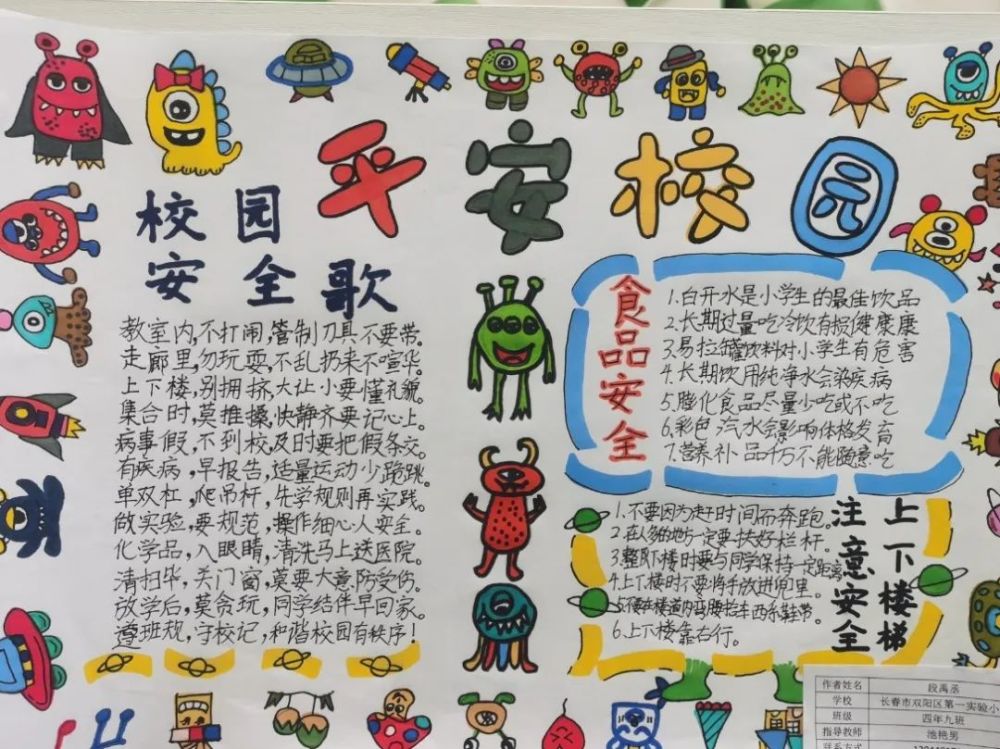 平安校园
校园
安全歌
教室内,不打闹,管制刀具不要带。
走廊里,勿玩耍,不乱扔来不喧华。
上下楼,别拥挤,大让小要懂礼貌。
集合时,莫推搡,快静齐要记心上。
病事假,不到校,及时要把假条交。
有疾病,早报告,适量运动少跑跳。
单双杠,爬吊杆,先学规则再实践。
做实验,要规范,操作细心人安全。
化学品,入眼睛,清洗马上送医院。
清扫毕,关门窗,莫要大意防受伤。
放学后,莫贪玩,同学结伴早回家。
遵班规,守校记,和谐校园有秩序!
食品安全
1.白开水是小学生的最佳饮品
2.长期过量吃冷饮有损健康康
3.易拉罐饮料对小学生有危害
4.长期饮用纯净水会染疾病
5.膨化食品尽量少吃或不吃
6.彩色汽水会影响体格发育
7.营养补品千万不能随意吃
上下楼梯
注意安全
1.不要因为赶时间而奔跑。
2.在人多的地方一定要扶好栏杆。
3.整队下楼时要与同学保持一定距离
4.上下楼时不要将手放进兜里。
5.不要在楼道内弯腰拾东西系鞋带。
6.上下楼靠右行。
作者姓名 段禹丞
学校 长春市双阳区第一实验小
班级 四年九班
指导教师 池艳男
联系方式